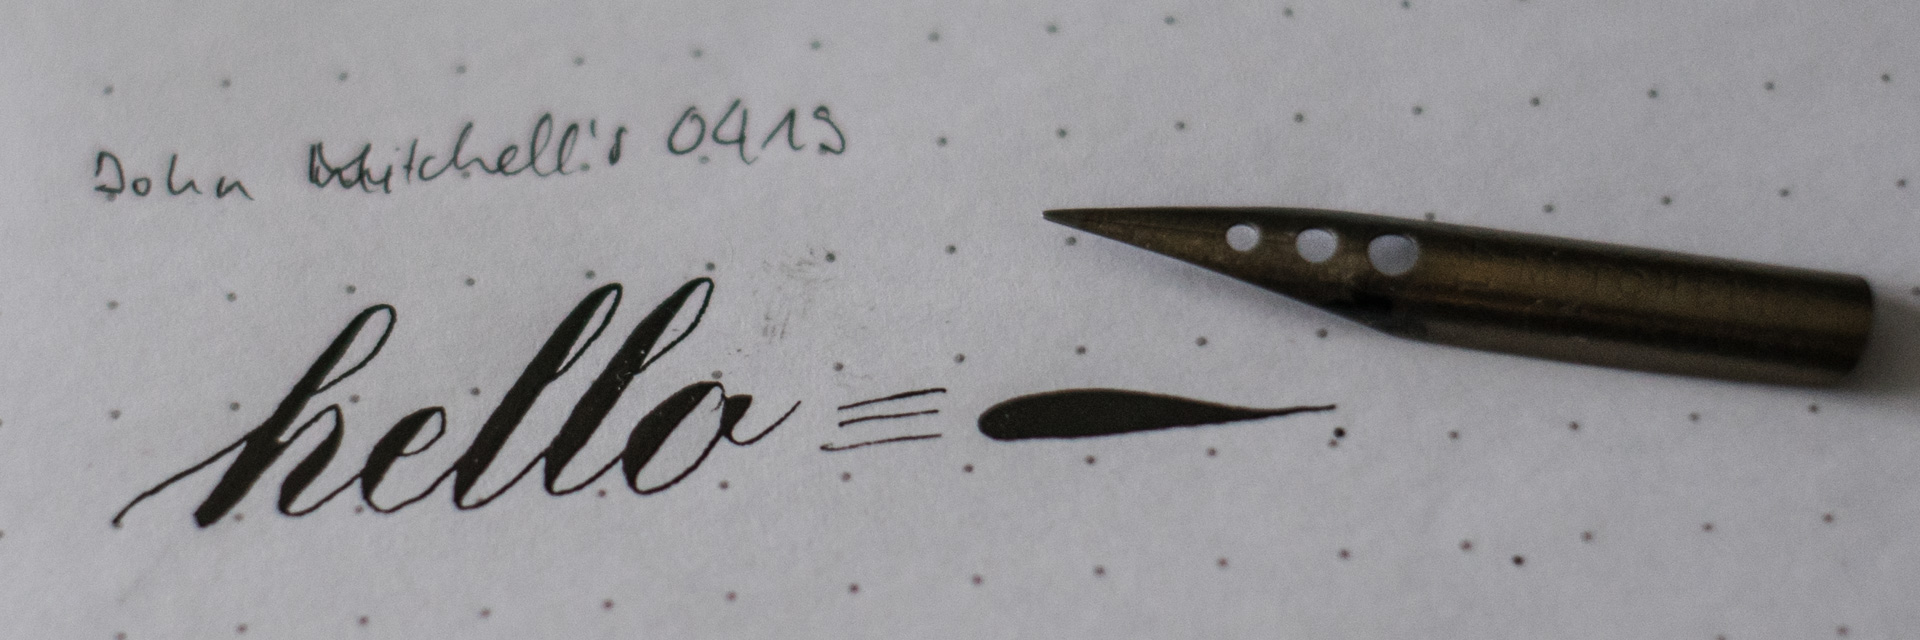 John Mitchell's 0419
hello